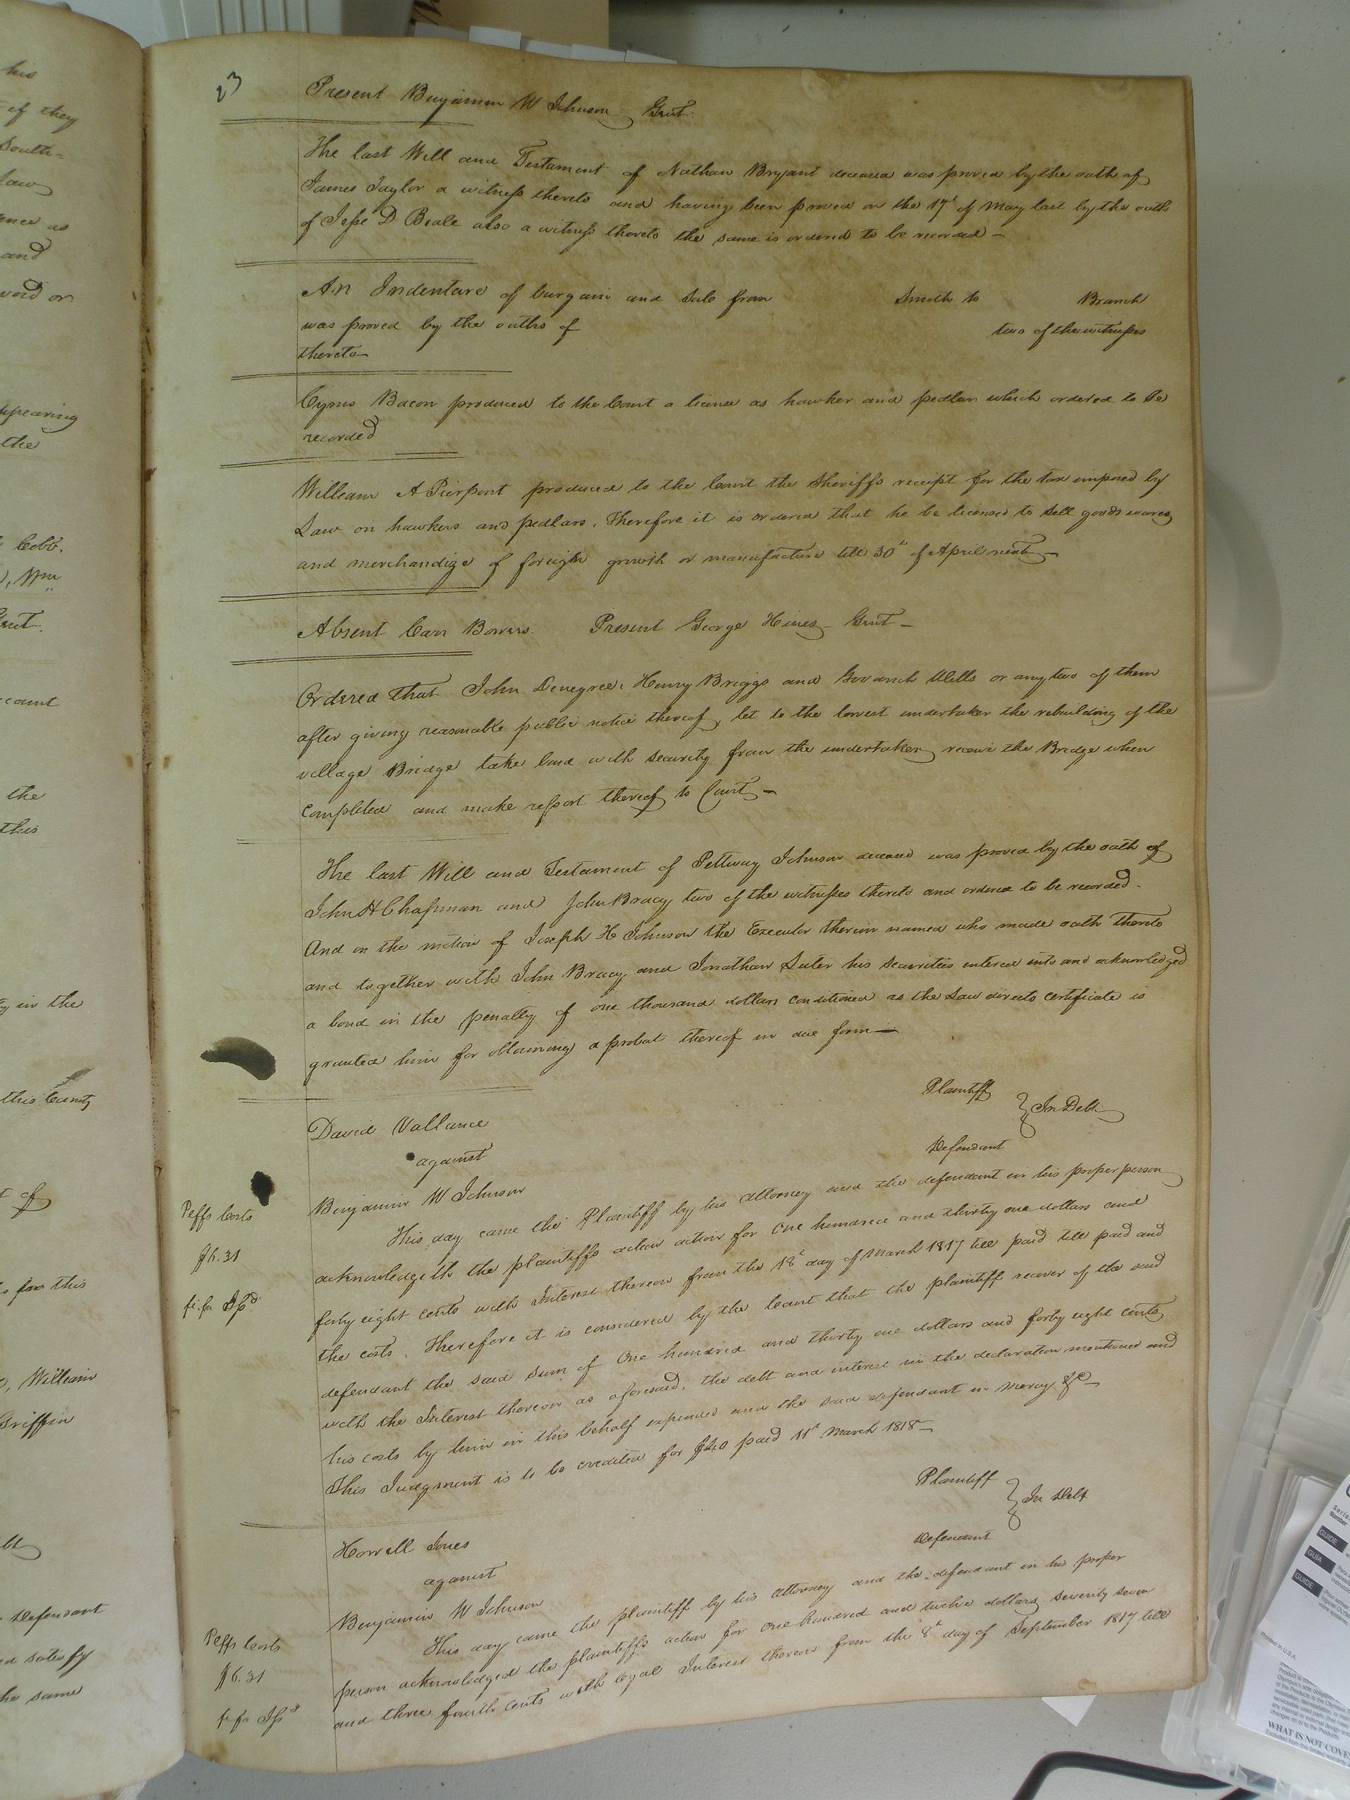 23
Present Benjamin W Johnson Gent.
The last Will and Testament of Nathan Bryant deceased was proved by the oath of
James Taylor a witness thereto and having been proved on the 17th of May last by the oath
of Jesse D Beale also a witness thereto the same is ordered to be recorded -
An Indenture of bargain and Sale from Smith to Branch
was proved by the oaths of two of the witnesses
thereto -
Cyrus Bacon produced to the Court a license as hawker and pedlar which ordered to be
recorded
William A Pierpont produced to the Court the Sheriffs receipt for the tax imposed by
Law on hawkers and pedlars. Therefore it is ordered that he be licensed to sell goods wares
and merchandize of foreign growth or manufacture till 30th of April next -
Absent Carr Bowers. Present George Hines - Gent -
Ordered that John Denegree, Henry Briggs and Wells or any two of them
after giving reasonable public notice thereof, let to the lowest undertaker the rebuilding of the
village Bridge take bond with security from the undertaker, receive the Bridge when
completed and make report thereof to Court -
The last Will and Testament of Pettway Johnson deceased was proved by the oath of
John H Chapman and John Bracy two of the witnesses thereto and ordered to be recorded.
And on the motion of Joseph H Johnson the Executor therein named who made oath thereto
and together with John Bracy and Jonathan Luter his securities entered into and acknowledged
a bond in the penalty of one thousand dollars conditioned as the Law directs certificate is
granted him for obtaining a probat thereof in due form -
David Vallance Plaintiff
against } In Debt
Benjamin W Johnson Defendant
This day came the Plaintiff by his attorney and the defendant in his proper person
acknowledgeth the plaintiffs action action for One hundred and thirty one dollars and
forty eight cents with Interest thereon from the 18th day of March 1817 till paid till paid and
the costs. Therefore it is considered by the Court that the plaintiff recover of the said
defendant the said sum of One hundred and thirty one dollars and forty eight cents
with the Interest thereon as aforesaid, the debt and interest in the declaration mentioned and
his costs by him in this behalf expended and the said defendant in mercy &c -
This Judgment is to be credited for $40 paid 11th March 1818 -
Peffs Costs
$6.31
fi: fa Issd
Howell Jones Plaintiff
against } In Debt
Benjamin W Johnson Defendant
This day came the plaintiff by his attorney and the defendant in his proper
person acknowledged the plaintiffs action for one hundred and twelve dollars seventy seven
and three fourth cents with legal Interest thereon from the 8th day of September 1817 till
Peffs Costs
$6.31
fi fa Issd
his
of they
South=
Law
ence as
and
void or
appearing
the
Cobb.
, Wm
Gent.
count
the
this
in the
this County
t of
for this
, William
Griffin
Defendant
satisfy
he same
GUIDE
GUIA
GUIDE
Printed in U.S.A.
WHAT IS NOT COVE